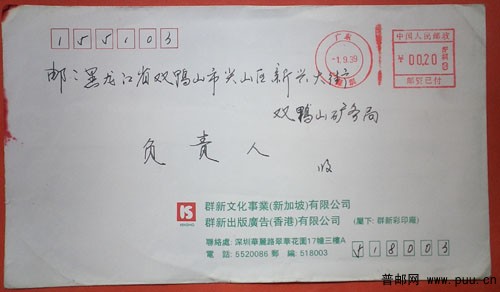 155103
广东
中国人民邮政
¥ 00.20
邮资已付
邮：黑龙江省双鸭山市尖山区新兴大街
双鸭山矿务局
负责人 收
群新文化事業(新加坡)有限公司
群新出版廣告(香港)有限公司 (屬下: 群新彩印廠)
聯絡處: 深圳華麗路翠華花園17幢三樓A
電 話: 5520086 郵 編: 518003
518003
普邮网 www.puu.cn